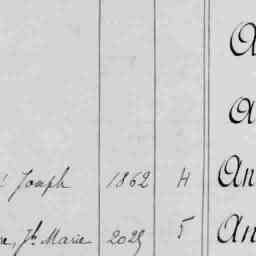 A
A
Joseph 1862 4 An
Jh Marie 2025 5 An